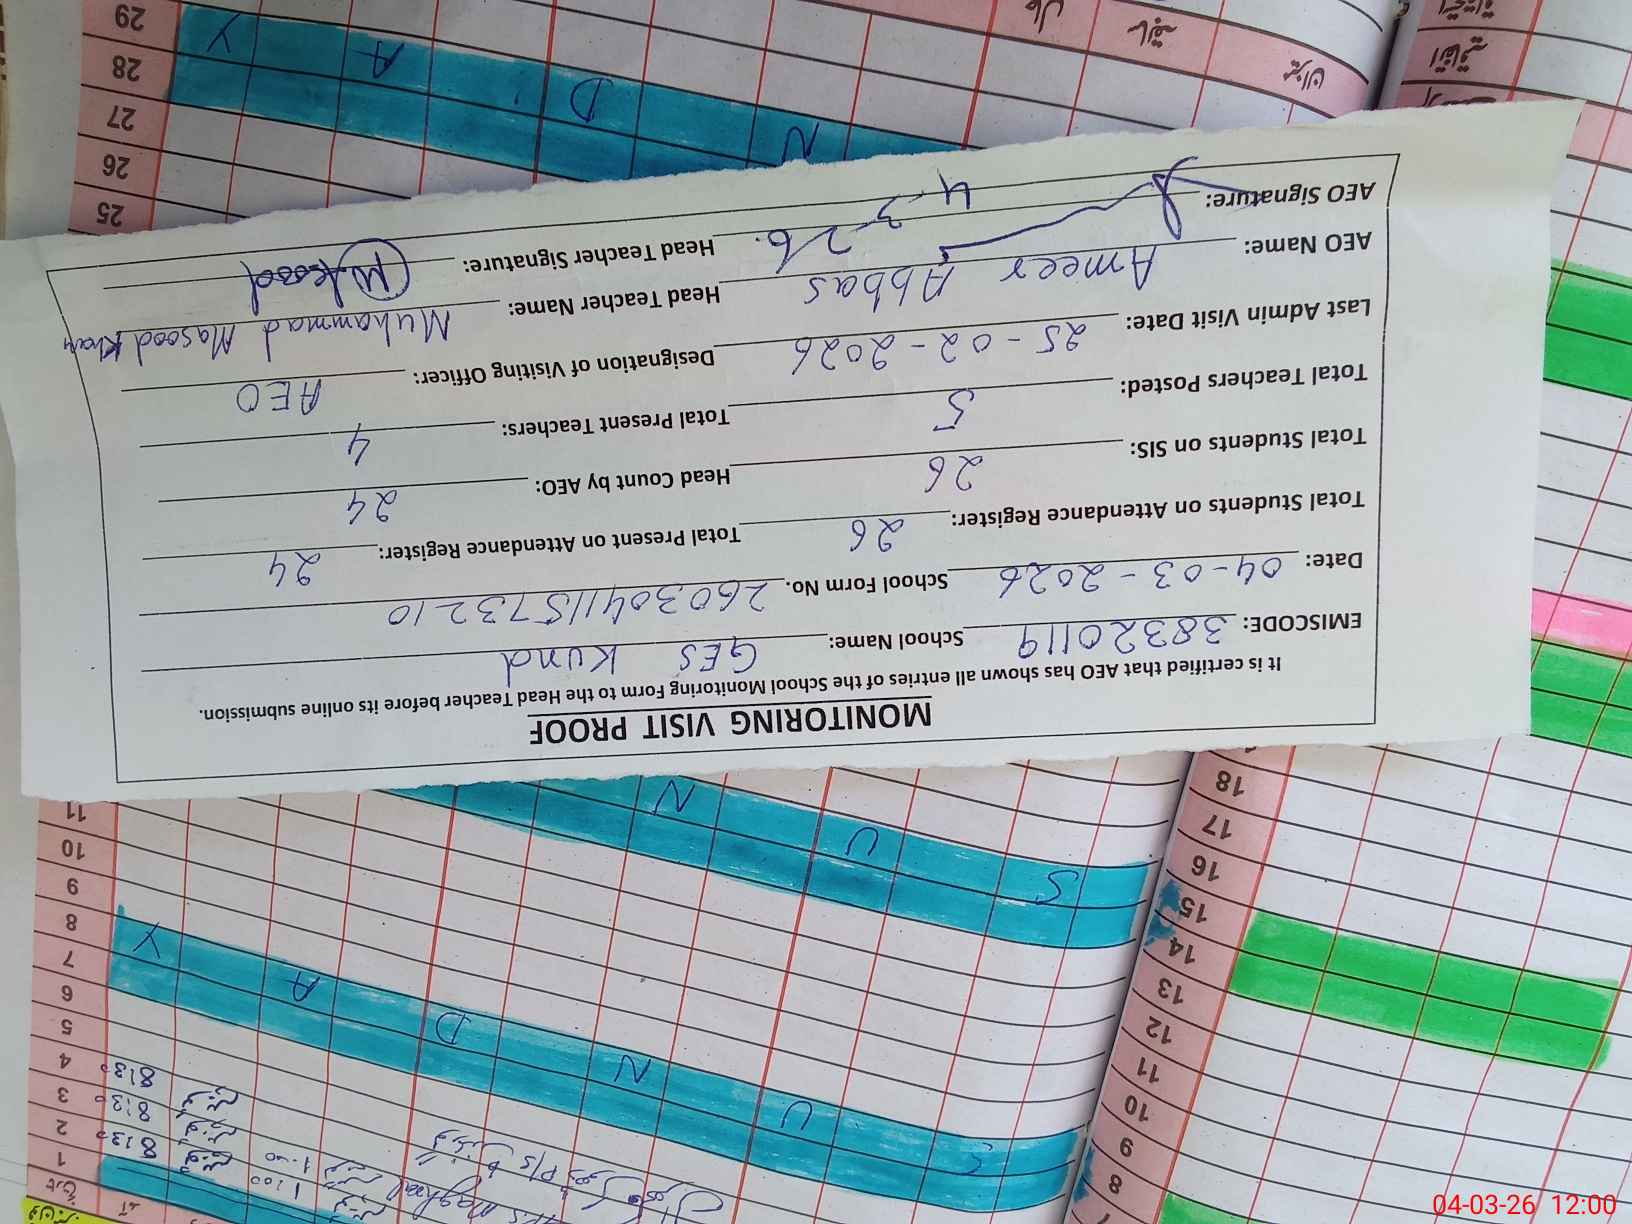 MONITORING VISIT PROOF
It is certified that AEO has shown all entries of the School Monitoring Form to the Head Teacher before its online submission.
EMISCODE: 38320119 School Name: GES Kund
Date: 04-03-2026 School Form No. 26030411573210
Total Students on Attendance Register: 26 Total Present on Attendance Register: 24
Total Students on SIS: 26 Head Count by AEO: 24
Total Teachers Posted: 5 Total Present Teachers: 4
Last Admin Visit Date: 25-02-2026 Designation of Visiting Officer: AEO
AEO Name: Ameer Abbas Head Teacher Name: Muhammad Masood Khan
AEO Signature: 4-3-26. Head Teacher Signature:
1
2
3
4
5
6
7
8
9
10
11
25
26
27
28
29
S U N
S U N D A Y
N D A Y
8:30
8:30
8:30
1:00
1:00
7
8
9
10
11
12
13
14
15
16
17
18
میزان
سابقہ
حال
04-03-26 12:00